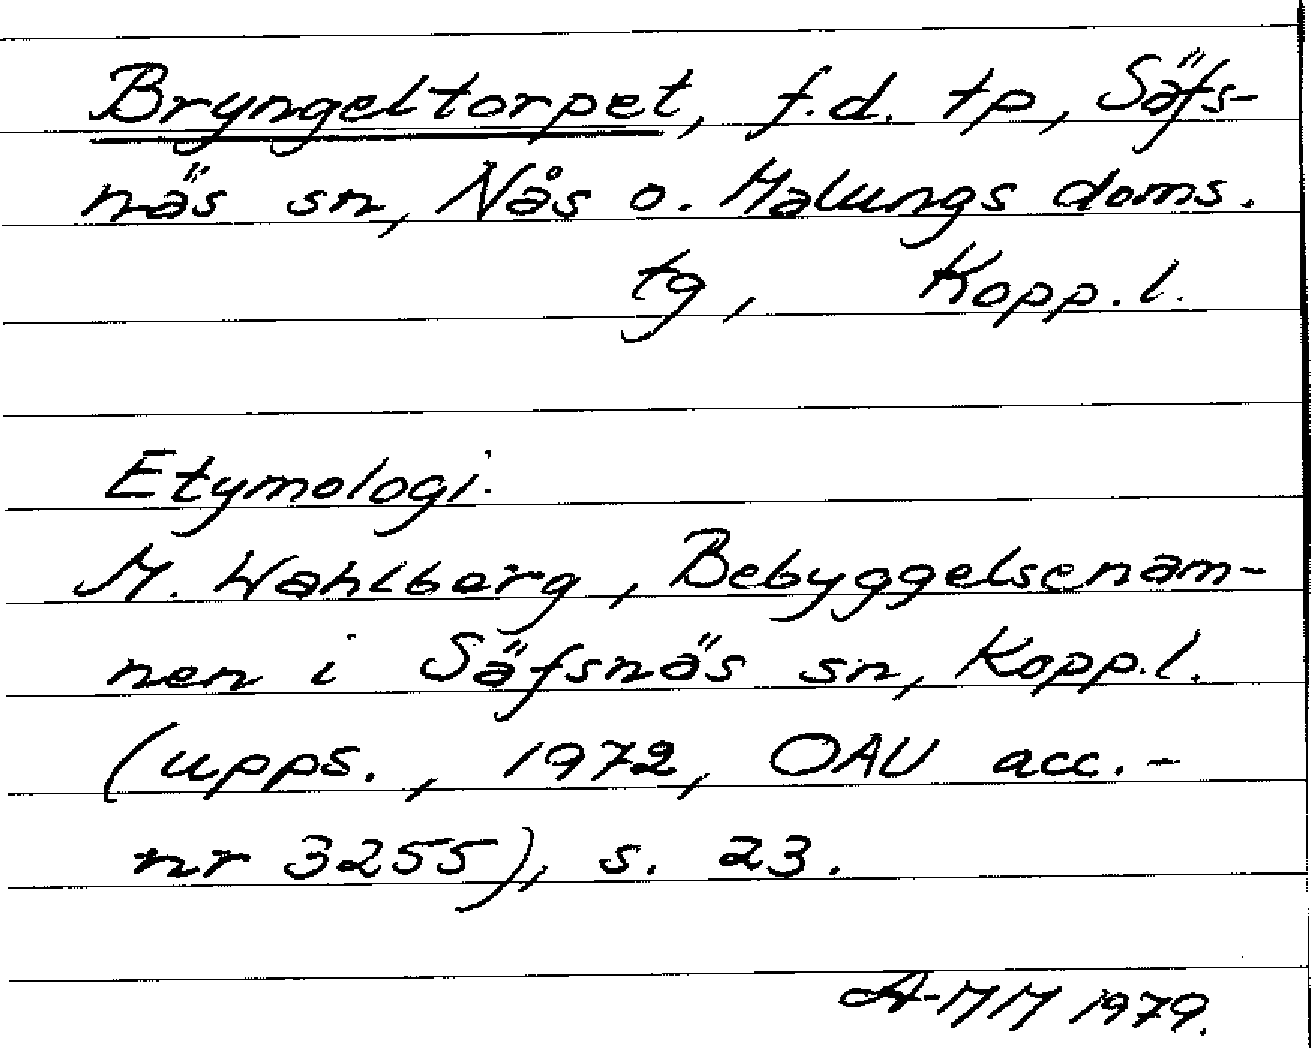 Bryngeltorpet, f.d. tp, Säfs-
näs sn, Nås o. Malungs doms.
tg, Kopp.l.
Etymologi:
M. Wahlberg, Bebyggelsenam-
nen i Säfsnäs sn, Kopp.l.
(upps., 1972, OAU acc.-
nr 3255), s. 23.
A-MM 1979.